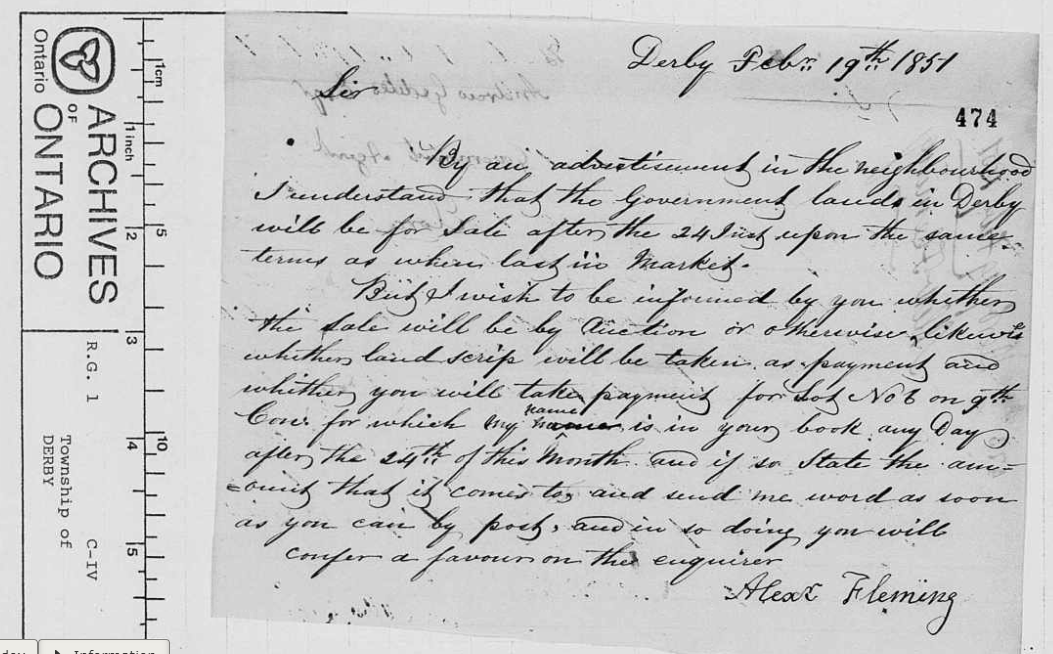 Derby Febr. 19th 1851
Sir
474
By an advertisement in the neighbourhood
I understand that the Government lands in Derby
will be for Sale after the 24 Inst upon the same
terms as when last in Market.
But I wish to be informed by you whether
the Sale will be by Auction or otherwise, likewise
whether land scrip will be taken as payment and
whether you will take payment for Lot No 6 on 9th
Con. for which my name is in your book any Day
after the 24th of this Month and if so State the am=
=ount that it comes to, and send me word as soon
as you can by post, and in so doing you will
confer a favour on the enquirer
Alexr Fleming
ARCHIVES
OF
ONTARIO
Ontario
R.G. 1 C-IV
Township of
DERBY
1cm
5
10
1 inch
2
3
4
5
Information